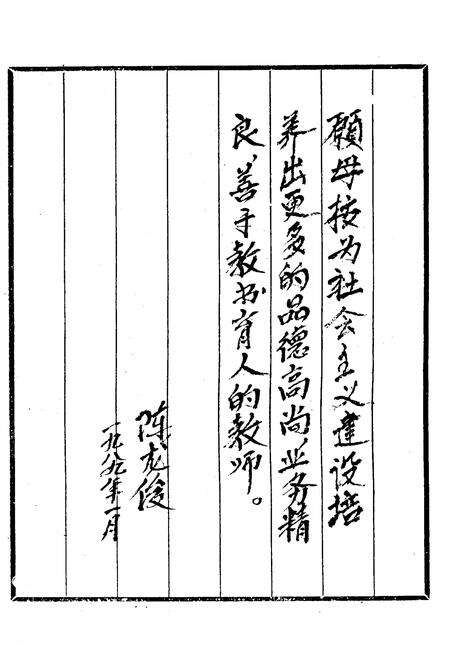 愿母校为社会主义建设培
养出更多的品德高尚、业务精
良、善于教书育人的教师。
陈龙俊
一九八九年一月